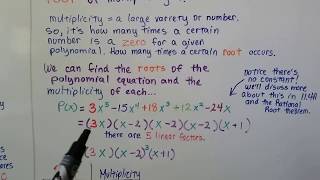 multiplicity = a large variety or number.
so, it's how many times a certain
number is a zero for a given
polynomial. How many times a certain root occurs.
We can find the roots of the
polynomial equation and the
multiplicity of each...
notice there's
no constant,
we'll discuss more
about this in 11.4A
and the Rational
Root theorem.
P(x) = 3x⁵-15x⁴+18x³+12x²-24x
= (3x)(x-2)(x-2)(x-2)(x+1)
there are 5 linear factors.
(3x)(x-2)³(x+1)
Multiplicity